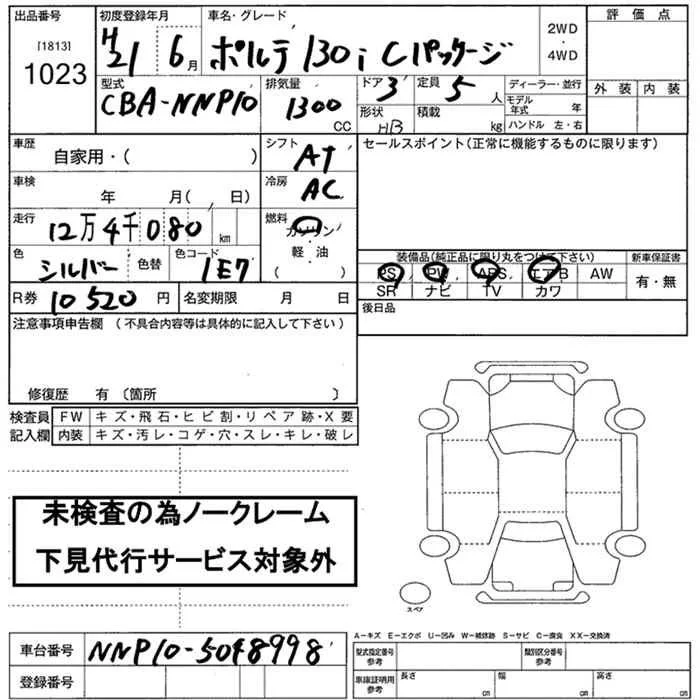 出品番号 初度登録年月 車名・グレード 評価点
[1813]
1023
H21 6月 ポルテ 130i Cパッケージ 2WD・4WD
型式 排気量 ドア 定員 ディーラー・並行 外装 内装
CBA-NNP10 1300 CC 3 5人 モデル年式 年
形状 積載 ハンドル 左・右
HB kg
車歴 シフト セールスポイント(正常に機能するものに限ります)
自家用・( ) AT
車検 冷房
年 月( 日) AC
走行 燃料
12万4千080 km ガソリン・軽油
色 色コード ( ) 装備品(純正品に限り丸をつけて下さい) 新車保証書
シルバー 色替 1E7 PS PW ABS エアB AW 有・無
SR ナビ TV カワ
R券 10520円 名変期限 月 日 後日品
注意事項申告欄 (不具合内容等は具体的に記入して下さい)
修復歴 有 〔箇所 〕
検査員 FW キズ・飛石・ヒビ割・リペア跡・X要
記入欄 内装 キズ・汚レ・コゲ・穴・スレ・キレ・破レ
未検査の為ノークレーム
下見代行サービス対象外
スペア
A-キズ E-エクボ U-凹み W-補修跡 S-サビ C-腐食 XX-交換済
車台番号 NNP10-5048998 型式指定番号 参考 類別区分番号 参考
登録番号 車庫証明用 参考 長さ cm 幅 cm 高さ cm